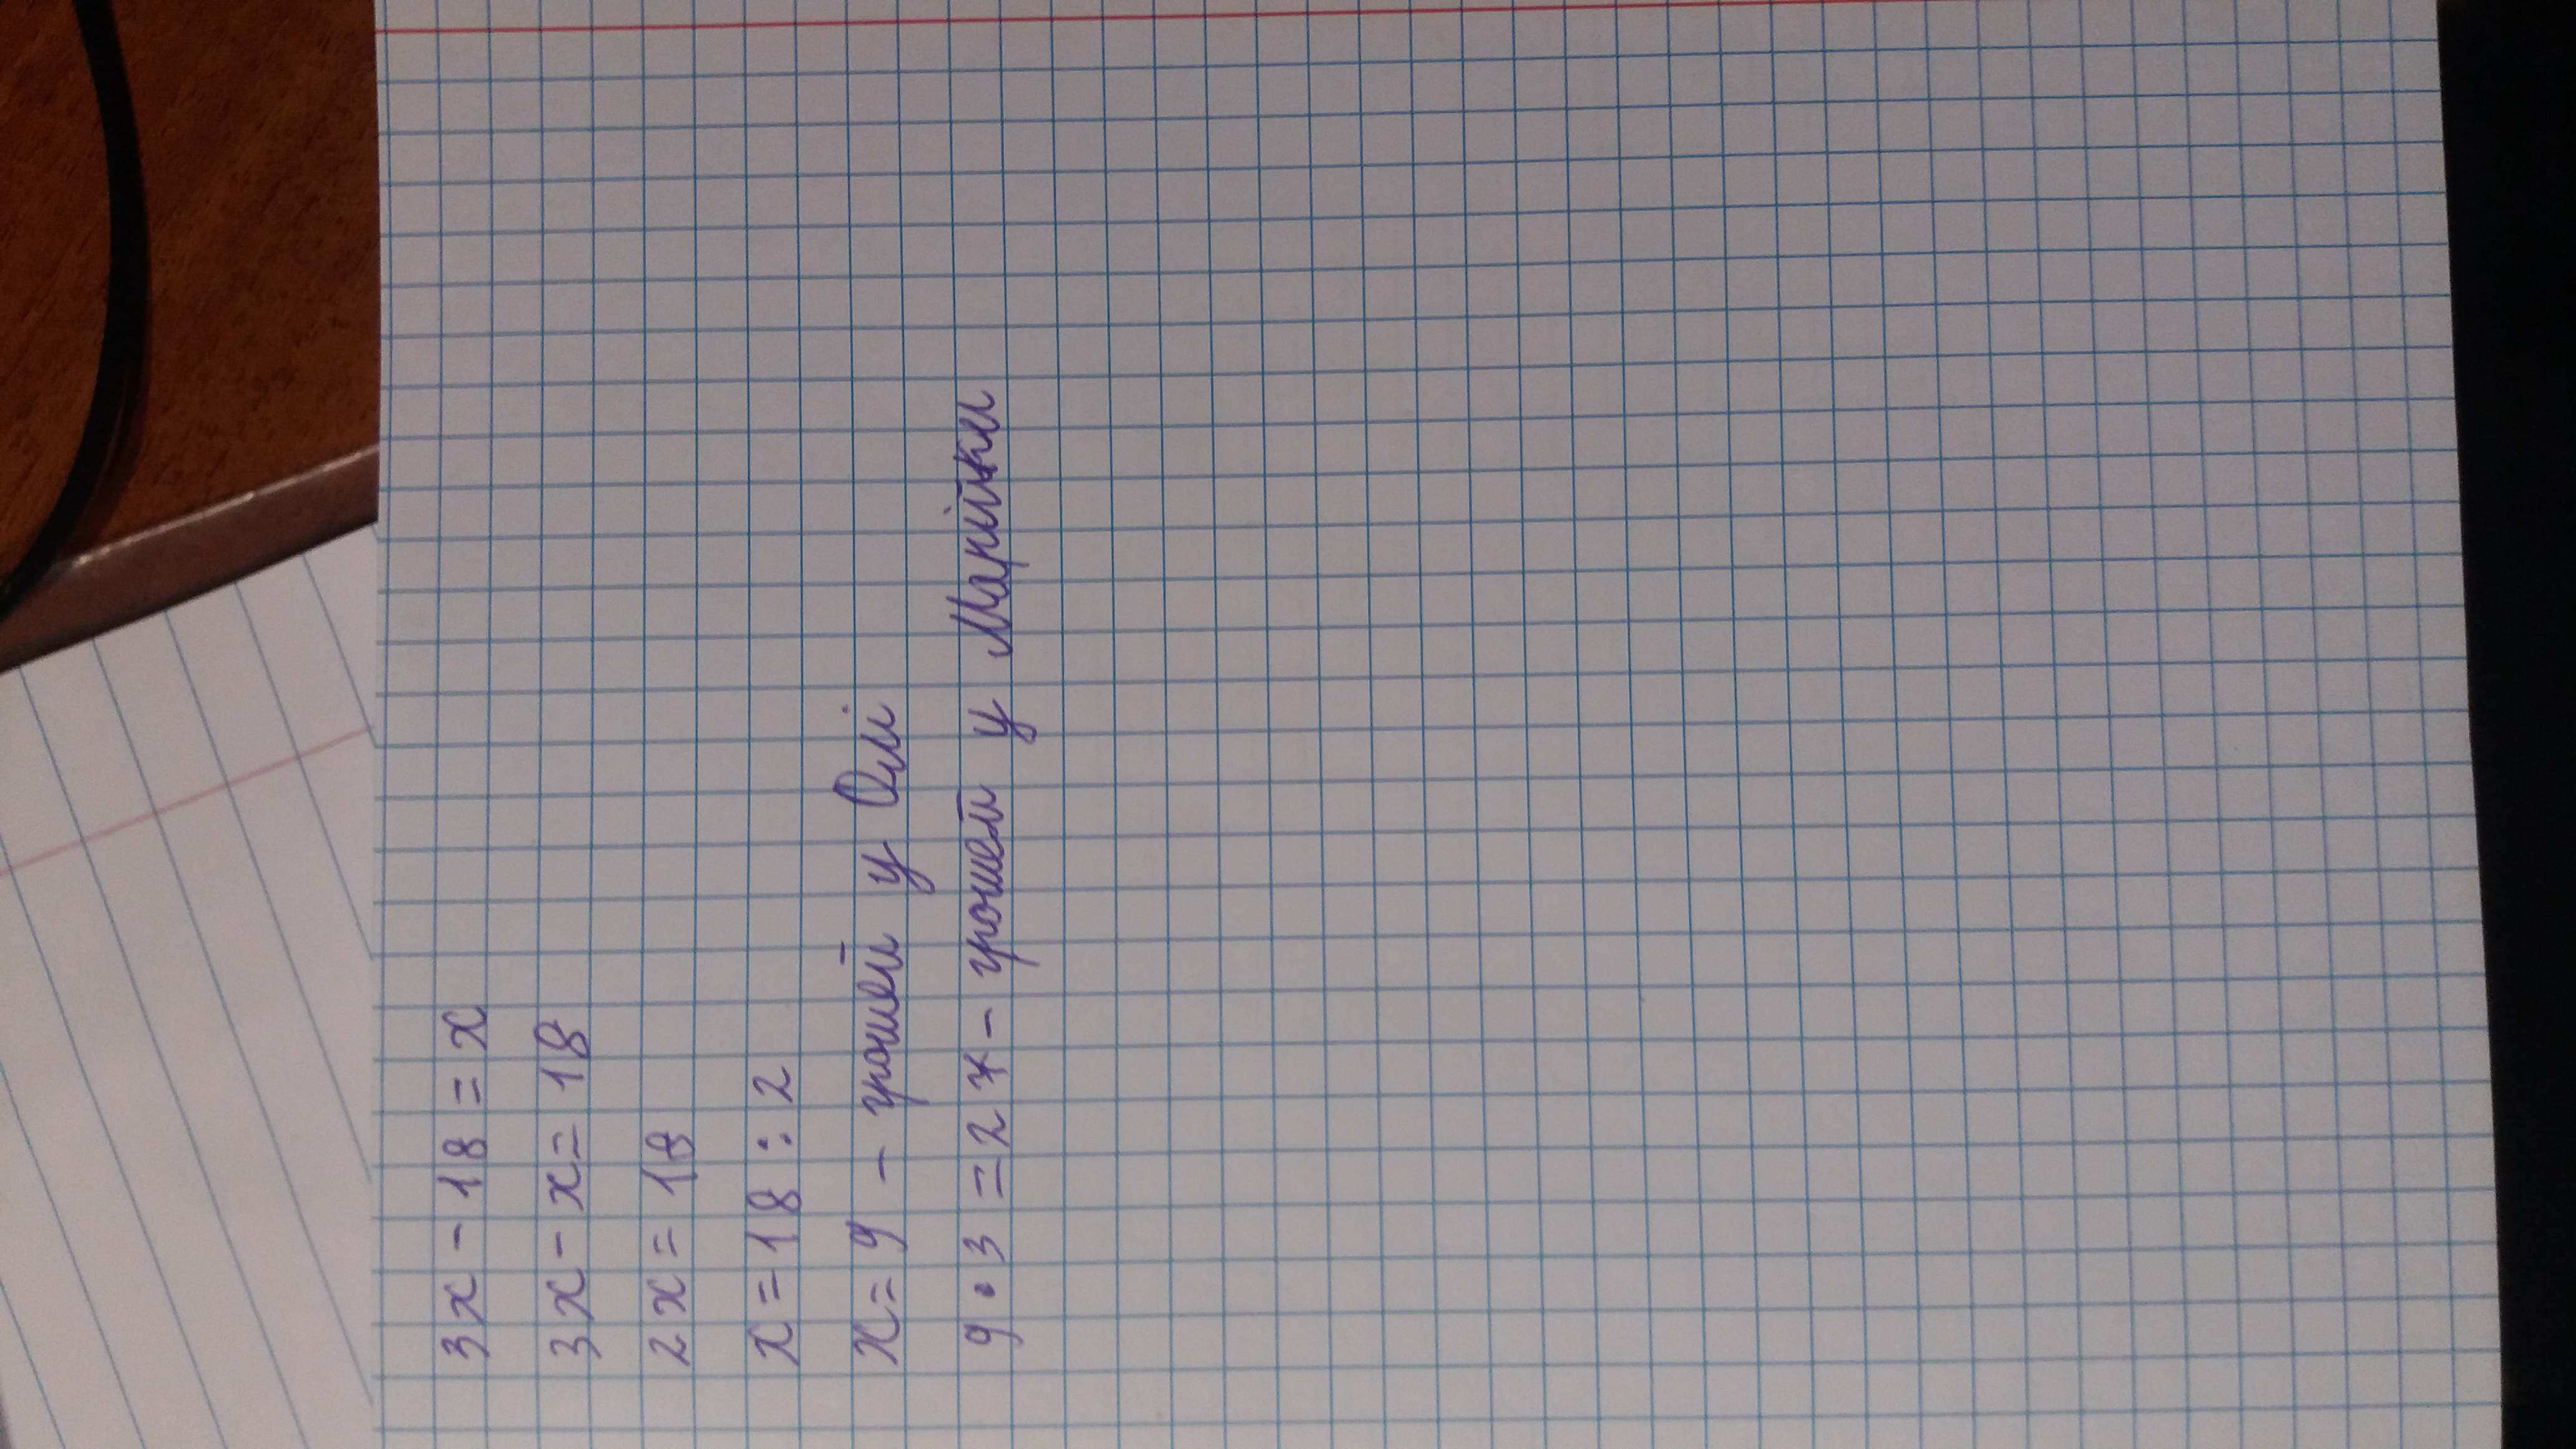 3x - 18 = x
3x - x = 18
2x = 18
x = 18 : 2
x = 9 - грошей у Олі
9 • 3 = 27 - грошей у Марійки